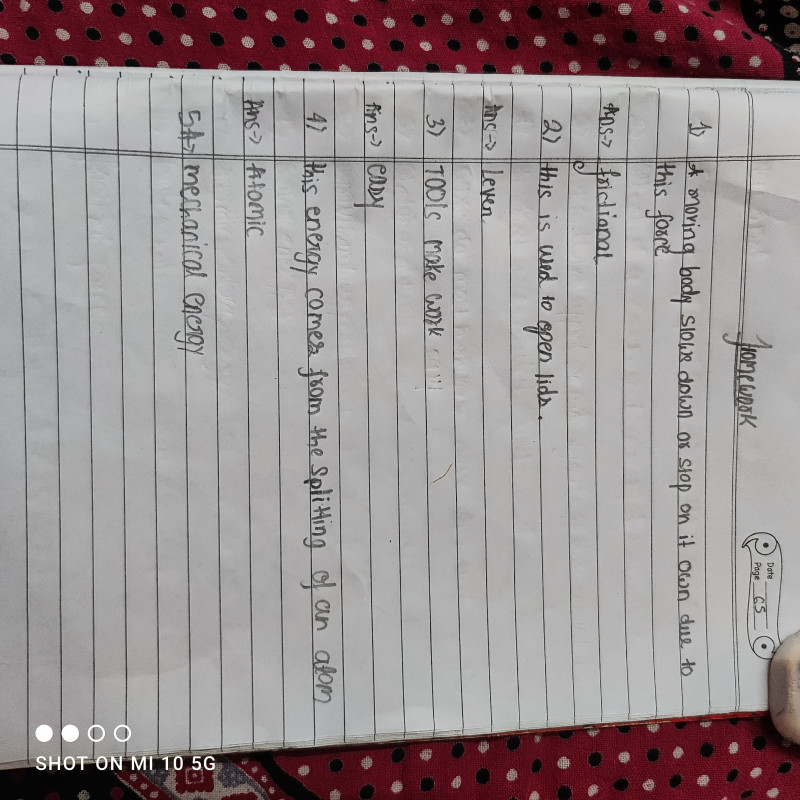 Date
Page 65
Homework
1) A moving body slowe down or stop on it own due to
this force
Ans→ frictional
2) this is used to open lids.
Ans→ Lever
3) Tools make work
Ans→ easy
4) this energy comes from the splitting of an atom
Ans→ Atomic
5A→ mechanical energy
SHOT ON MI 10 5G